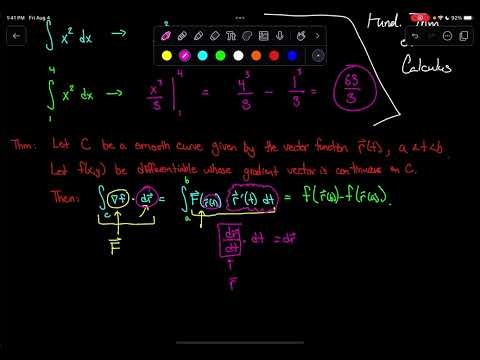 1:41 PM Fri Aug 4
92%
∫ x² dx →
Fund. Thm
of
Calculus
∫₁⁴ x² dx → x³/3 |₁⁴ = 4³/3 − 1³/3 = 63/3
Thm: Let C be a smooth curve given by the vector function r⃗(t), a ≤ t ≤ b.
Let f(x,y) be differentiable whose gradient vector is continuous on C.
Then: ∫_C ∇f · dr⃗ = ∫ₐᵇ F⃗(r⃗(t)) · r⃗'(t) dt = f(r⃗(b)) − f(r⃗(a)).
F⃗
dr⃗/dt · dt = dr⃗
r⃗'